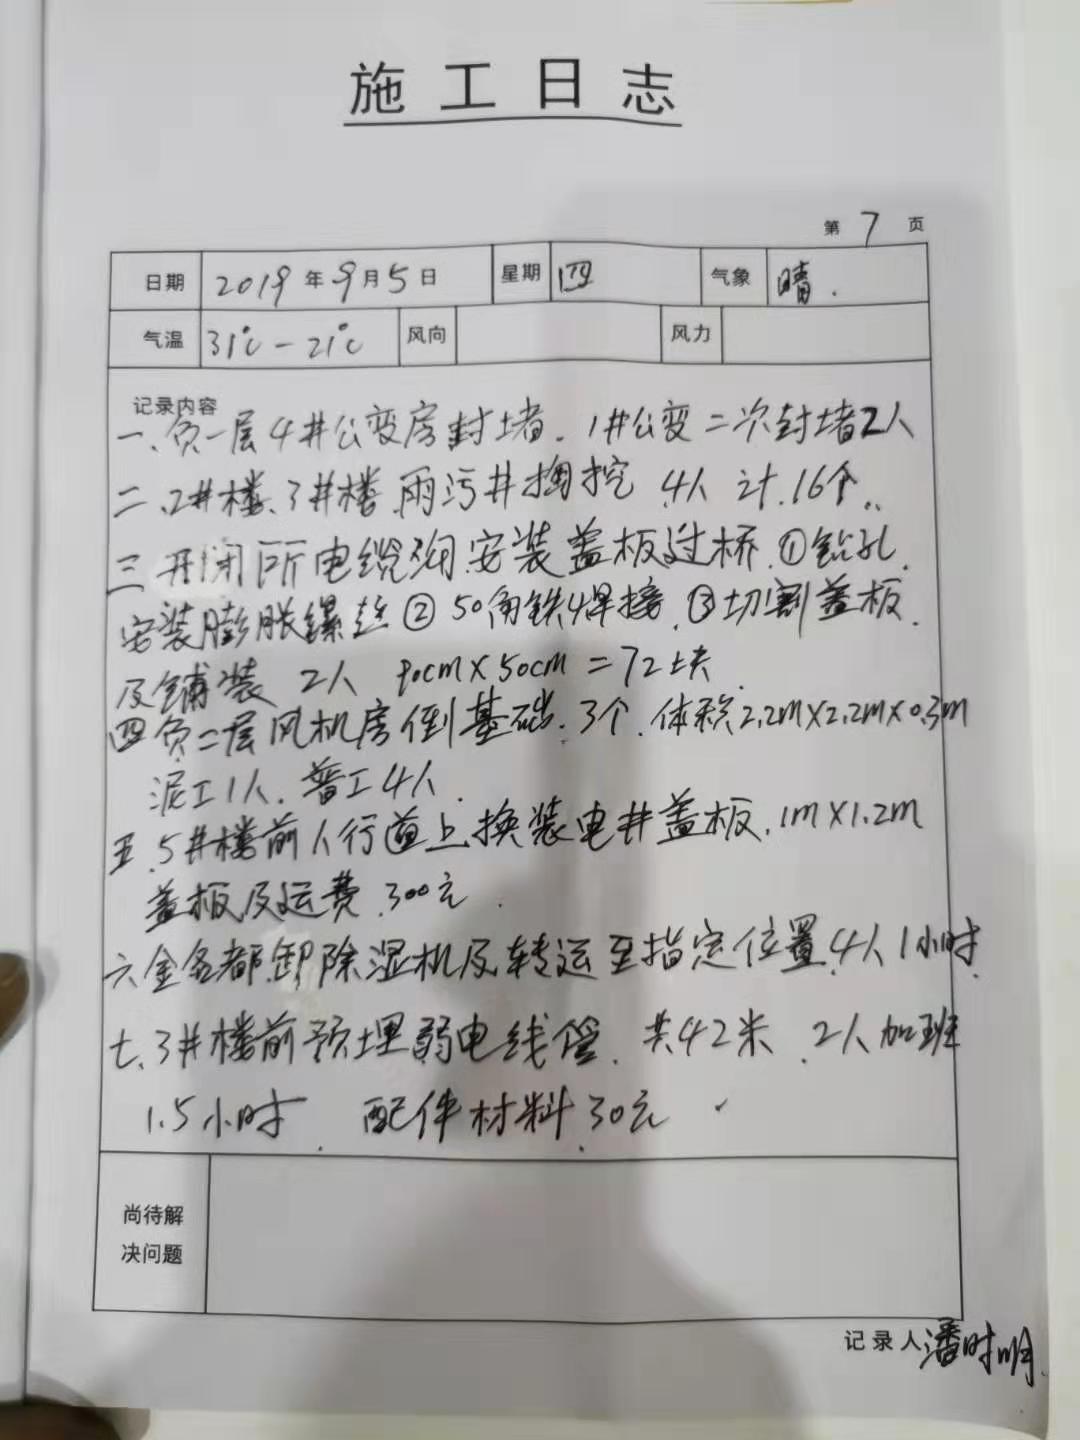 施工日志
第 7 页
日期 2019年9月5日 星期 四 气象 晴.
气温 31℃-21℃ 风向 风力
记录内容
一.负一层4#公变房封堵.1#公变二次封堵2人
二.2#楼、3#楼.雨污井掏挖 4人 计.16个..
三 开闭所电缆沟.安装盖板过桥.①钻孔.
安装膨胀镙丝②50角铁焊接.③切割盖板.
及铺装 2人 90cm×50cm=72块.
四负二层风机房倒基础.3个.体积2.2m×2.2m×0.3m
泥工1人.普工4人.
五.5#楼前人行道上换装电井盖板.1m×1.2m
盖板及运费.300元.
六金名都.卸除湿机及转运至指定位置.4人1小时.
七.3#楼前预埋弱电线管.共42米.2人加班
1.5小时.配件材料.30元
尚待解
决问题
记录人潘时明.